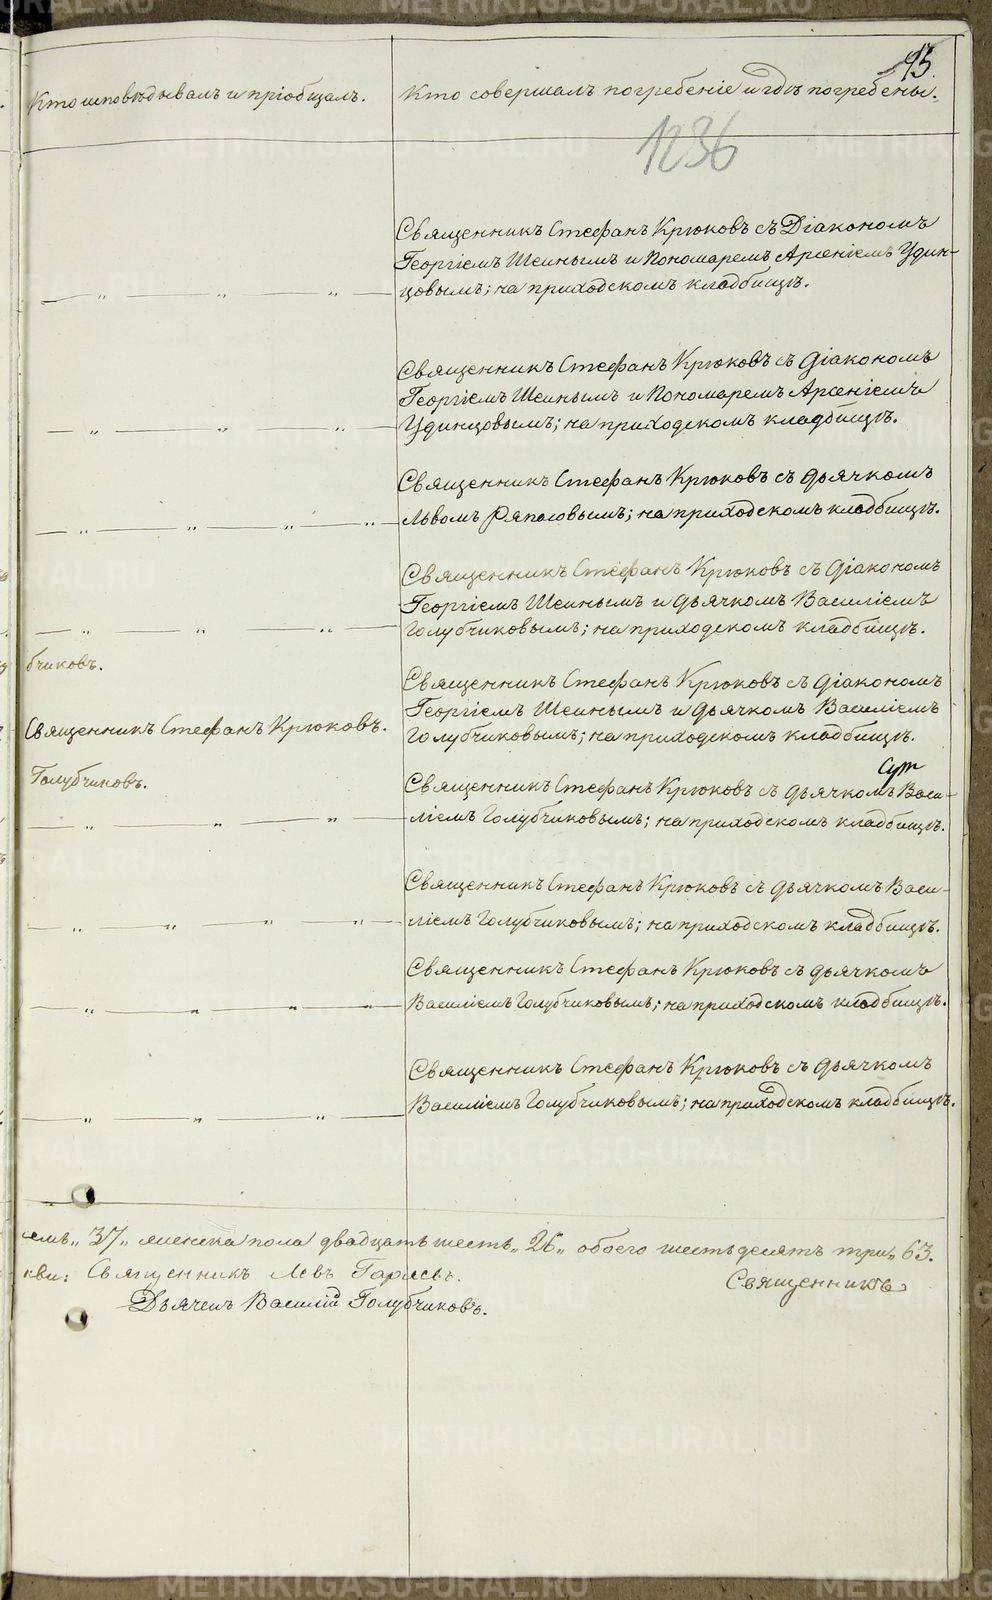 93.
Кто исповѣдывалъ и пріобщалъ.
Кто совершалъ погребеніе и гдѣ погребены.
1236
Священникъ Стефанъ Крюковъ съ Діакономъ
Георгіемъ Шеинымъ и Пономаремъ Арсеніемъ Удин-
цовымъ; на приходскомъ кладбищѣ.
Священникъ Стефанъ Крюковъ съ Діакономъ
Георгіемъ Шеинымъ и Пономаремъ Арсеніемъ
Удинцовымъ; на приходскомъ кладбищѣ.
Священникъ Стефанъ Крюковъ съ дьячкомъ
Львомъ Ряпасовымъ; на приходскомъ кладбищѣ.
Священникъ Стефанъ Крюковъ съ Діакономъ
Георгіемъ Шеинымъ и дьячкомъ Василіемъ
Голубчиковымъ; на приходскомъ кладбищѣ.
бчиковъ.
Священникъ Стефанъ Крюковъ.
Священникъ Стефанъ Крюковъ съ Діакономъ
Георгіемъ Шеинымъ и дьячкомъ Василіемъ
Голубчиковымъ; на приходскомъ кладбищѣ.
Голубчиковъ.
Священникъ Стефанъ Крюковъ съ дьячкомъ Васи-
ліемъ Голубчиковымъ; на приходскомъ кладбищѣ.
Священникъ Стефанъ Крюковъ съ дьячкомъ Васи-
ліемъ Голубчиковымъ; на приходскомъ кладбищѣ.
Священникъ Стефанъ Крюковъ съ дьячкомъ
Василіемъ Голубчиковымъ; на приходскомъ кладбищѣ.
Священникъ Стефанъ Крюковъ съ дьячкомъ
Василіемъ Голубчиковымъ; на приходскомъ кладбищѣ.
емь „37„ женска пола двадцать шесть „26„ обоего шестьдесятъ три „63.
кви: Священникъ Левъ
Священникъ
Дьячекъ Василій Голубчиковъ.
METRIKI.GASO-URAL.RU